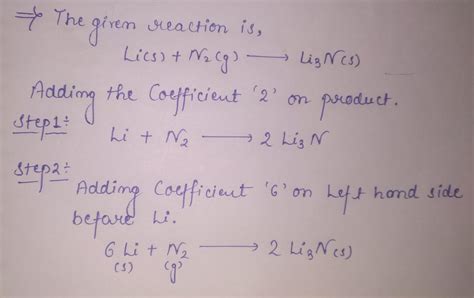 ⇒ The given reaction is,
Li(s) + N2(g) ⟶ Li3N(s)
Adding the Coefficient '2' on product.
Step1:
Li + N2 ⟶ 2 Li3N
Step2:
Adding Coefficient '6' on Left hand side
before Li.
6 Li + N2 ⟶ 2 Li3N(s)
(s) (g)